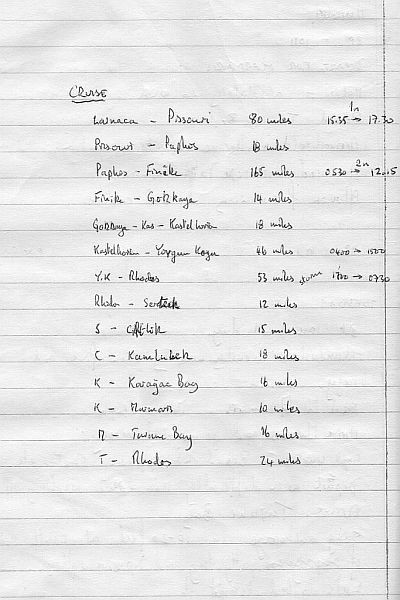 CRUISE
1n
Larnaca - Pissouri 80 miles 15.35 → 17.30
Pissouri - Paphos 18 miles
2n
Paphos - Finike 165 miles 0530 → 12.15
Finike - Gokkaya 14 miles
Gokkaya - Kas - Kastelhorizo 18 miles
Kastelhorizo - 46 miles 0400 → 1500
Y.K - Rhodes 53 miles 1700 → 0730
Rhodes - 12 miles
S - 15 miles
C - 18 miles
K - Karagac Bay 16 miles
K - Marmaris 10 miles
M - Bay 16 miles
T - Rhodes 24 miles